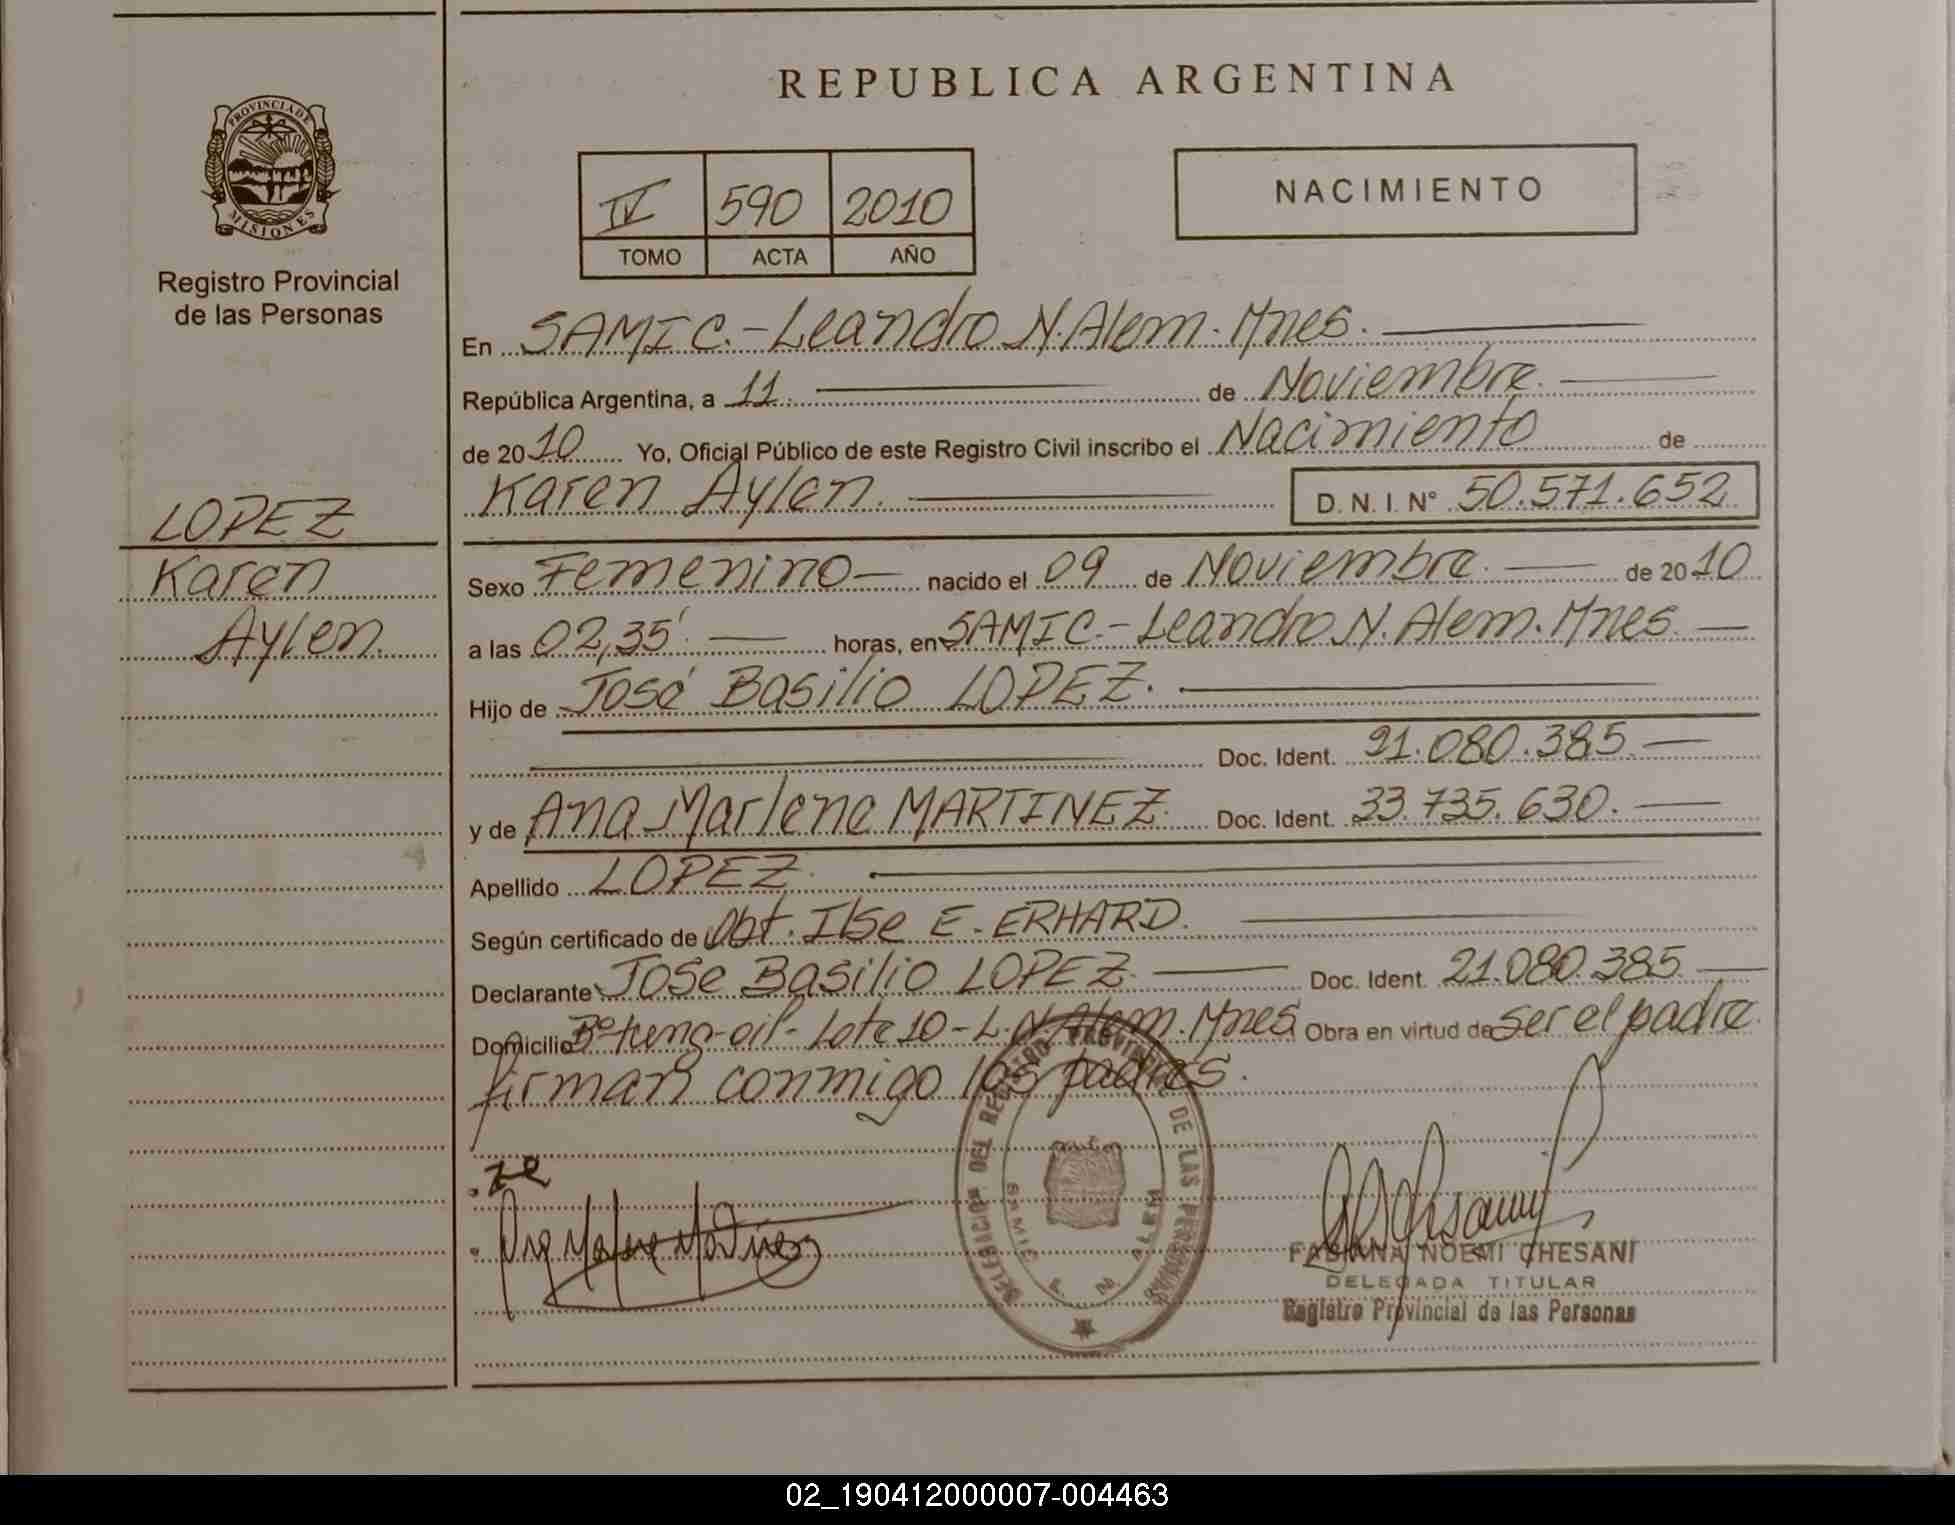 REPUBLICA ARGENTINA
PROVINCIA DE MISIONES
Registro Provincial
de las Personas
IV 590 2010
TOMO ACTA AÑO
NACIMIENTO
En SAMIC.-Leandro N. Alem. Mnes.
República Argentina, a 11. de Noviembre.
de 2010 Yo, Oficial Público de este Registro Civil inscribo el Nacimiento de
Karen Aylen. D. N. I. N° 50.571.652
LOPEZ
Karen
Aylen.
Sexo Femenino nacido el 09 de Noviembre. de 2010
a las 02,35'. horas, en SAMIC.-Leandro N. Alem. Mnes.
Hijo de José Basilio LOPEZ.
Doc. Ident. 21.080.385.
y de Ana Marlene MARTINEZ. Doc. Ident. 33.735.630.
Apellido LOPEZ.
Según certificado de Obt. Ilse E. ERHARD.
Declarante José Basilio LOPEZ. Doc. Ident. 21.080.385.
Domicilio B° tung-oil- Lote 10-L.N. Alem. Mnes. Obra en virtud de ser el padre.
firman conmigo los padres.
DELEGACION DEL REGISTRO PROVINCIAL DE LAS PERSONAS
SAMIC L. N. ALEM
Ana Marlene Martinez
FABIANA NOEMI CHESANI
DELEGADA TITULAR
Registro Provincial de las Personas
02_190412000007-004463